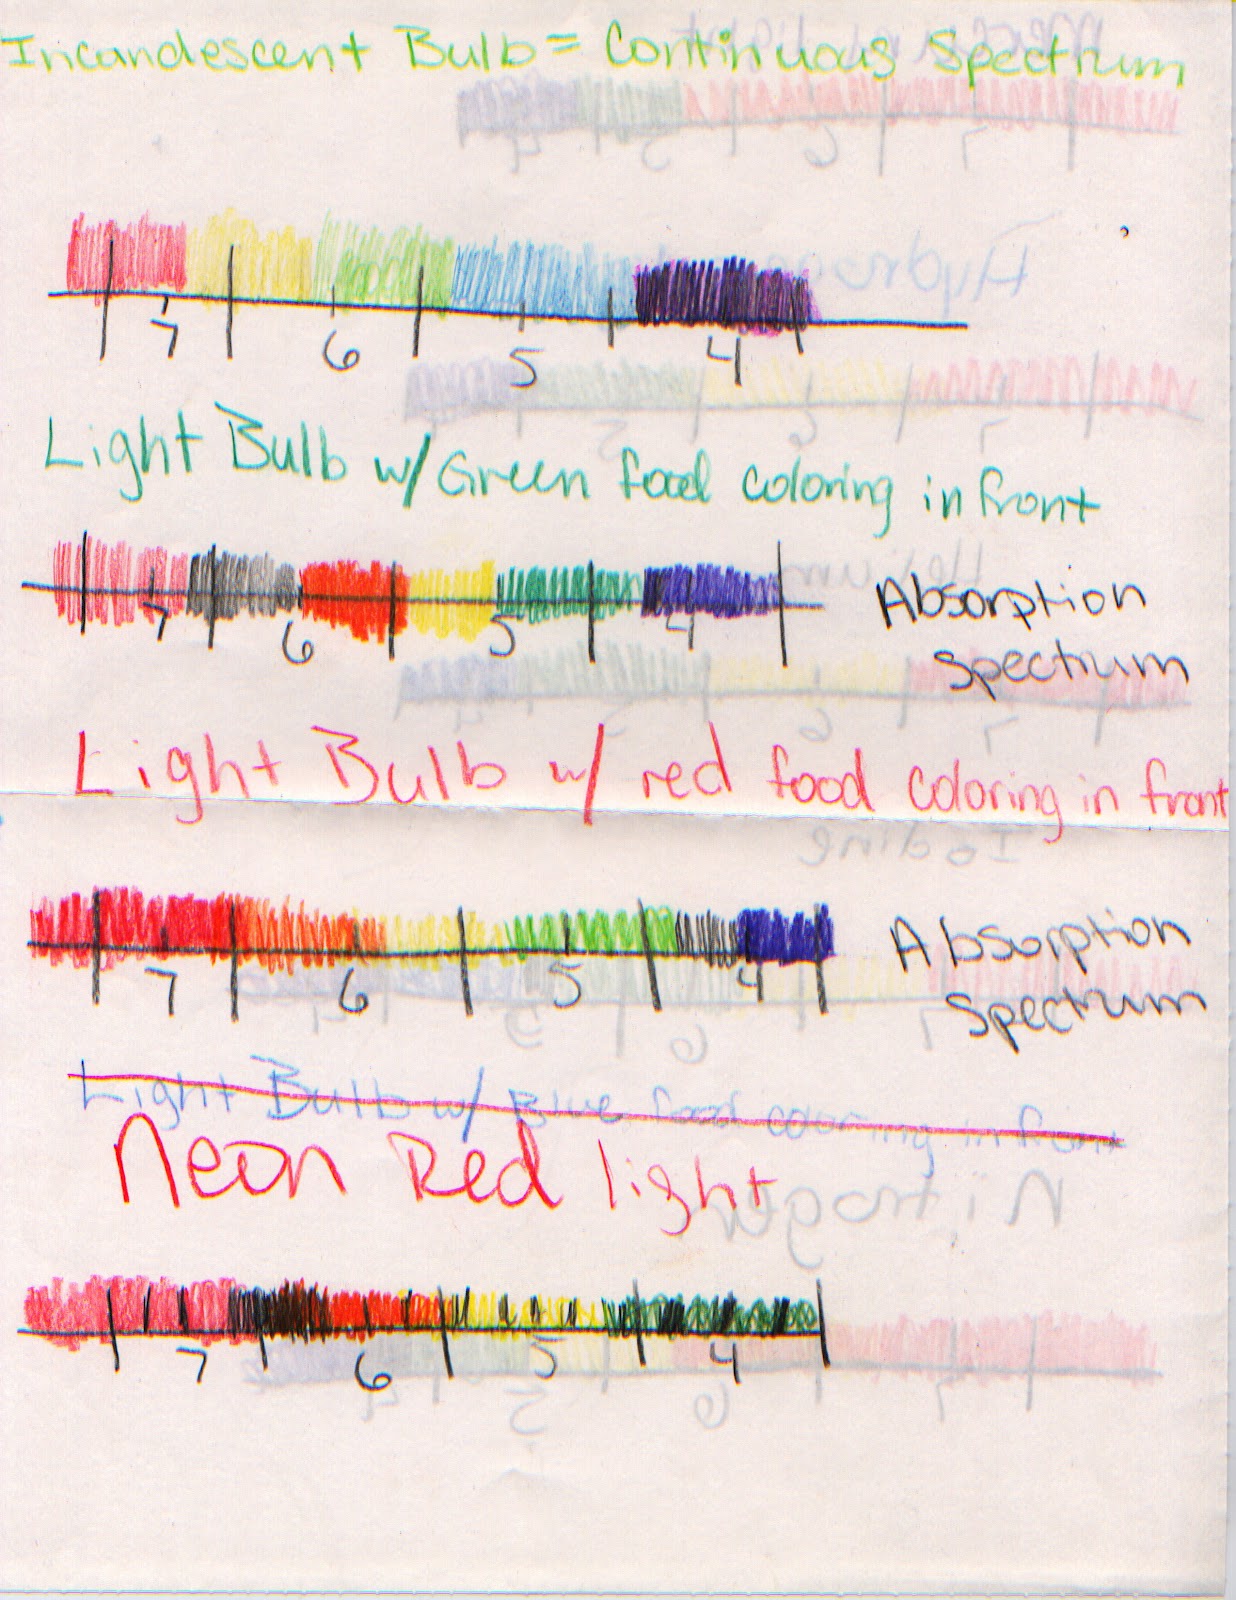 Incandescent Bulb = Continuous Spectrum
7 6 5 4
Light Bulb w/ Green food coloring in front
7 6 5 4
Absorption
Spectrum
Light Bulb w/ red food coloring in front
7 6 5 4
Absorption
Spectrum
Light Bulb w/ Blue food coloring in front
Neon Red light
7 6 5 4